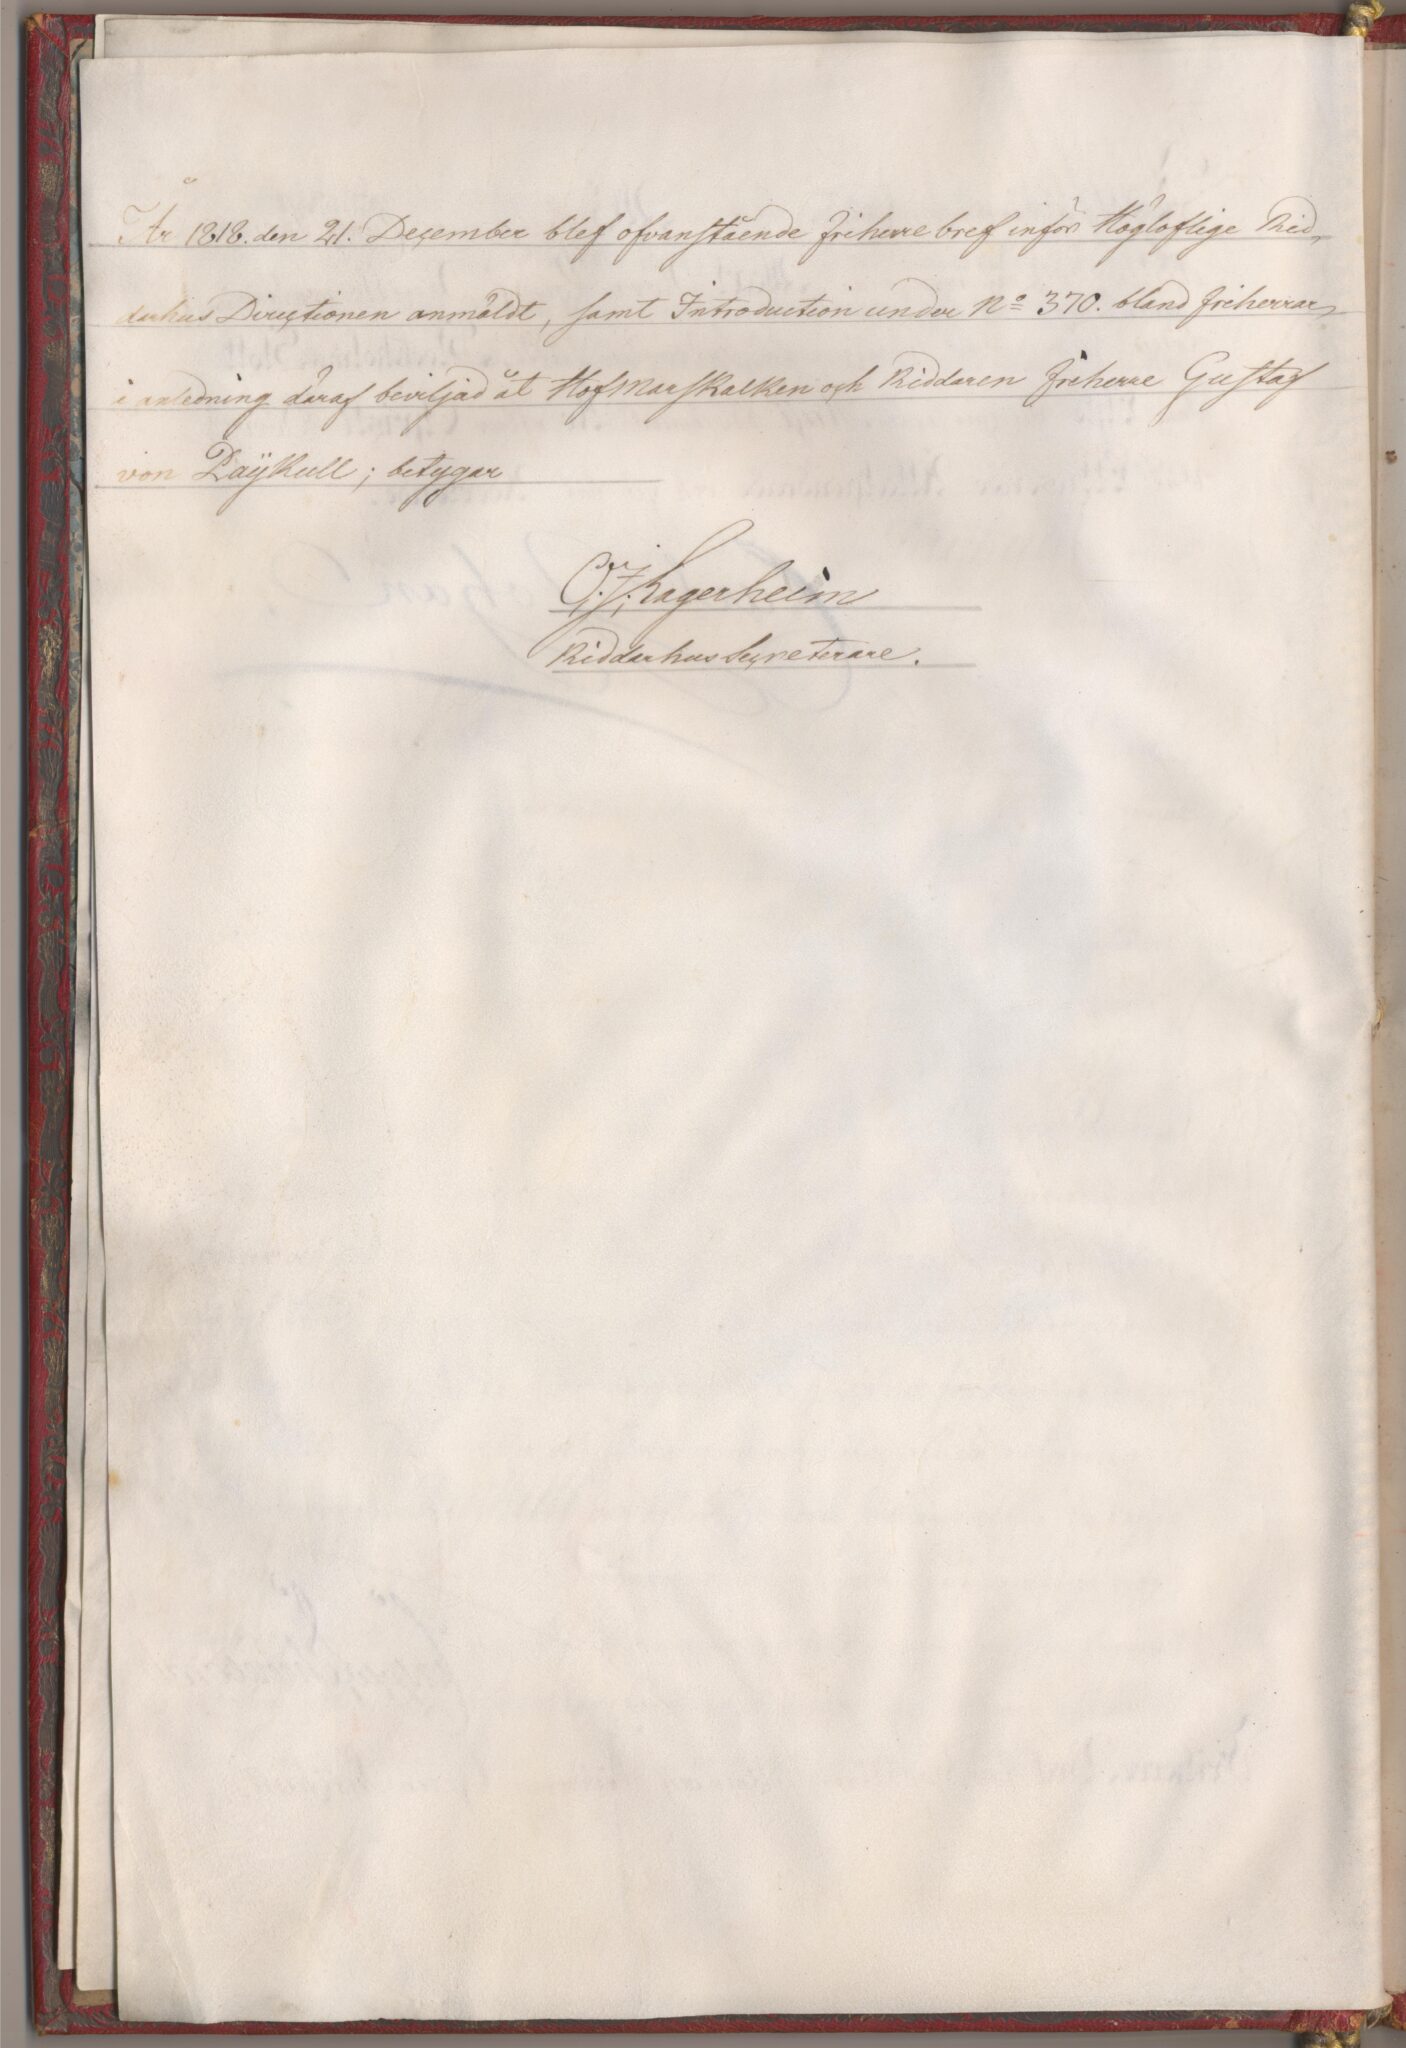 År 1818. den 21. December blef ofvanstående friherre bref inför Högloflige Rid-
darhus Directionen anmäldt, samt Introduction under No 370. bland friherrar,
i anledning däraf beviljad åt HofMarskalken och Riddaren friherre Gustaf
von Paÿkull; betygar
C. J. Lagerheim
Riddarhus Secreterare.